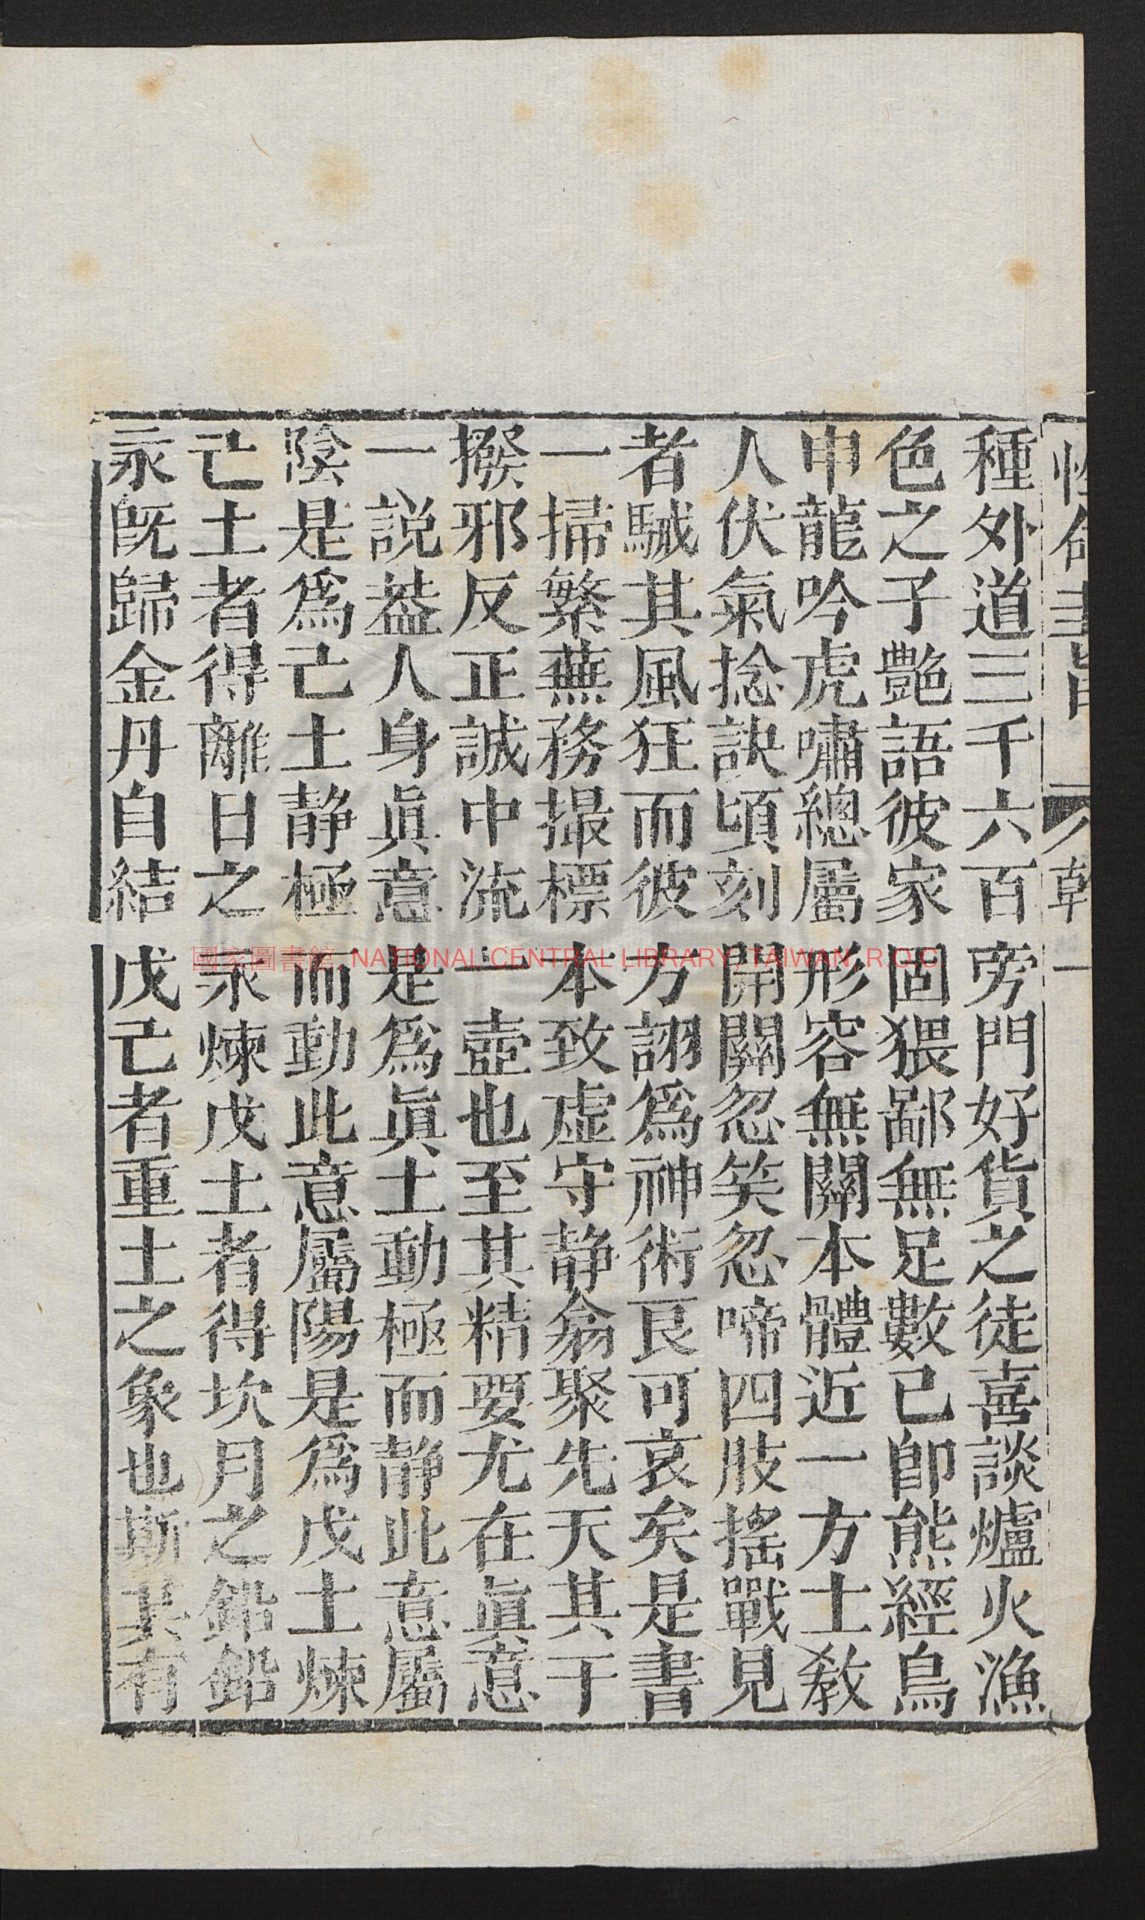 種外道三千六百旁門好貨之徒喜談爐火漁
色之子艷語彼家固猥鄙無足數已卽熊經鳥
申龍吟虎嘯總屬形容無關本體近一方士敎
人伏氣捻訣頃刻開關忽笑忽啼四肢搖戰見
者駴其風狂而彼方詡爲神術良可哀矣是書
一掃繁蕪務撮標本致虛守静翕聚先天其于
揆邪反正誠中流一壺也至其精要尤在眞意
一説葢人身眞意是爲眞土動極而静此意屬
陰是爲己土静極而動此意屬陽是爲戊土煉
己土者得離日之汞煉戊土者得坎月之鉛鉛
汞旣歸金丹自結戊己者重土之象也斯其有
國家圖書館 NATIONAL CENTRAL LIBRARY, TAIWAN, R.O.C